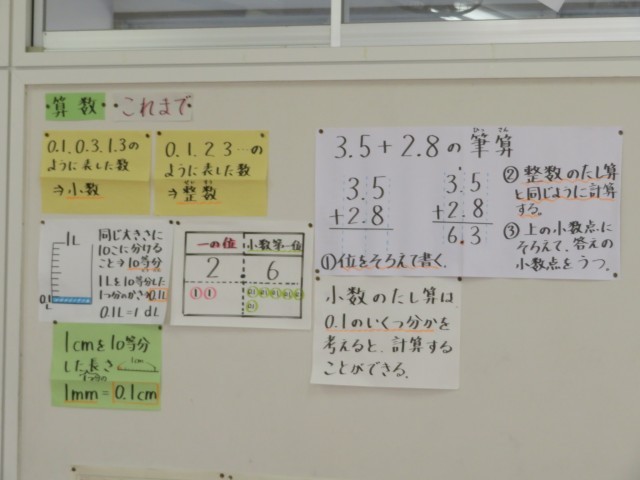 算数
これまで
0.1、0.3、1.3の
ように表した数
⇒小数
0、1、2、3…の
ように表した数
⇒整数
せいすう
1L
0.1L
同じ大きさに
10こに分ける
こと→10等分
1Lを10等分した
1つ分のかさを0.1L
0.1L=1dL
一の位
小数第一位
2
6
1 1
0.1 0.1 0.1 0.1 0.1
0.1
1cmを10等分
した長さ
1つ分の
1cm
1mm=0.1cm
3.5+2.8の筆算
ひっさん
3.5
+2.8
3.5
+2.8
6.3
①位をそろえて書く。
②整数のたし算
と同じように計算
する。
③上の小数点に
そろえて、答えの
小数点をうつ。
小数のたし算は
0.1のいくつ分かを
考えると、計算する
ことができる。